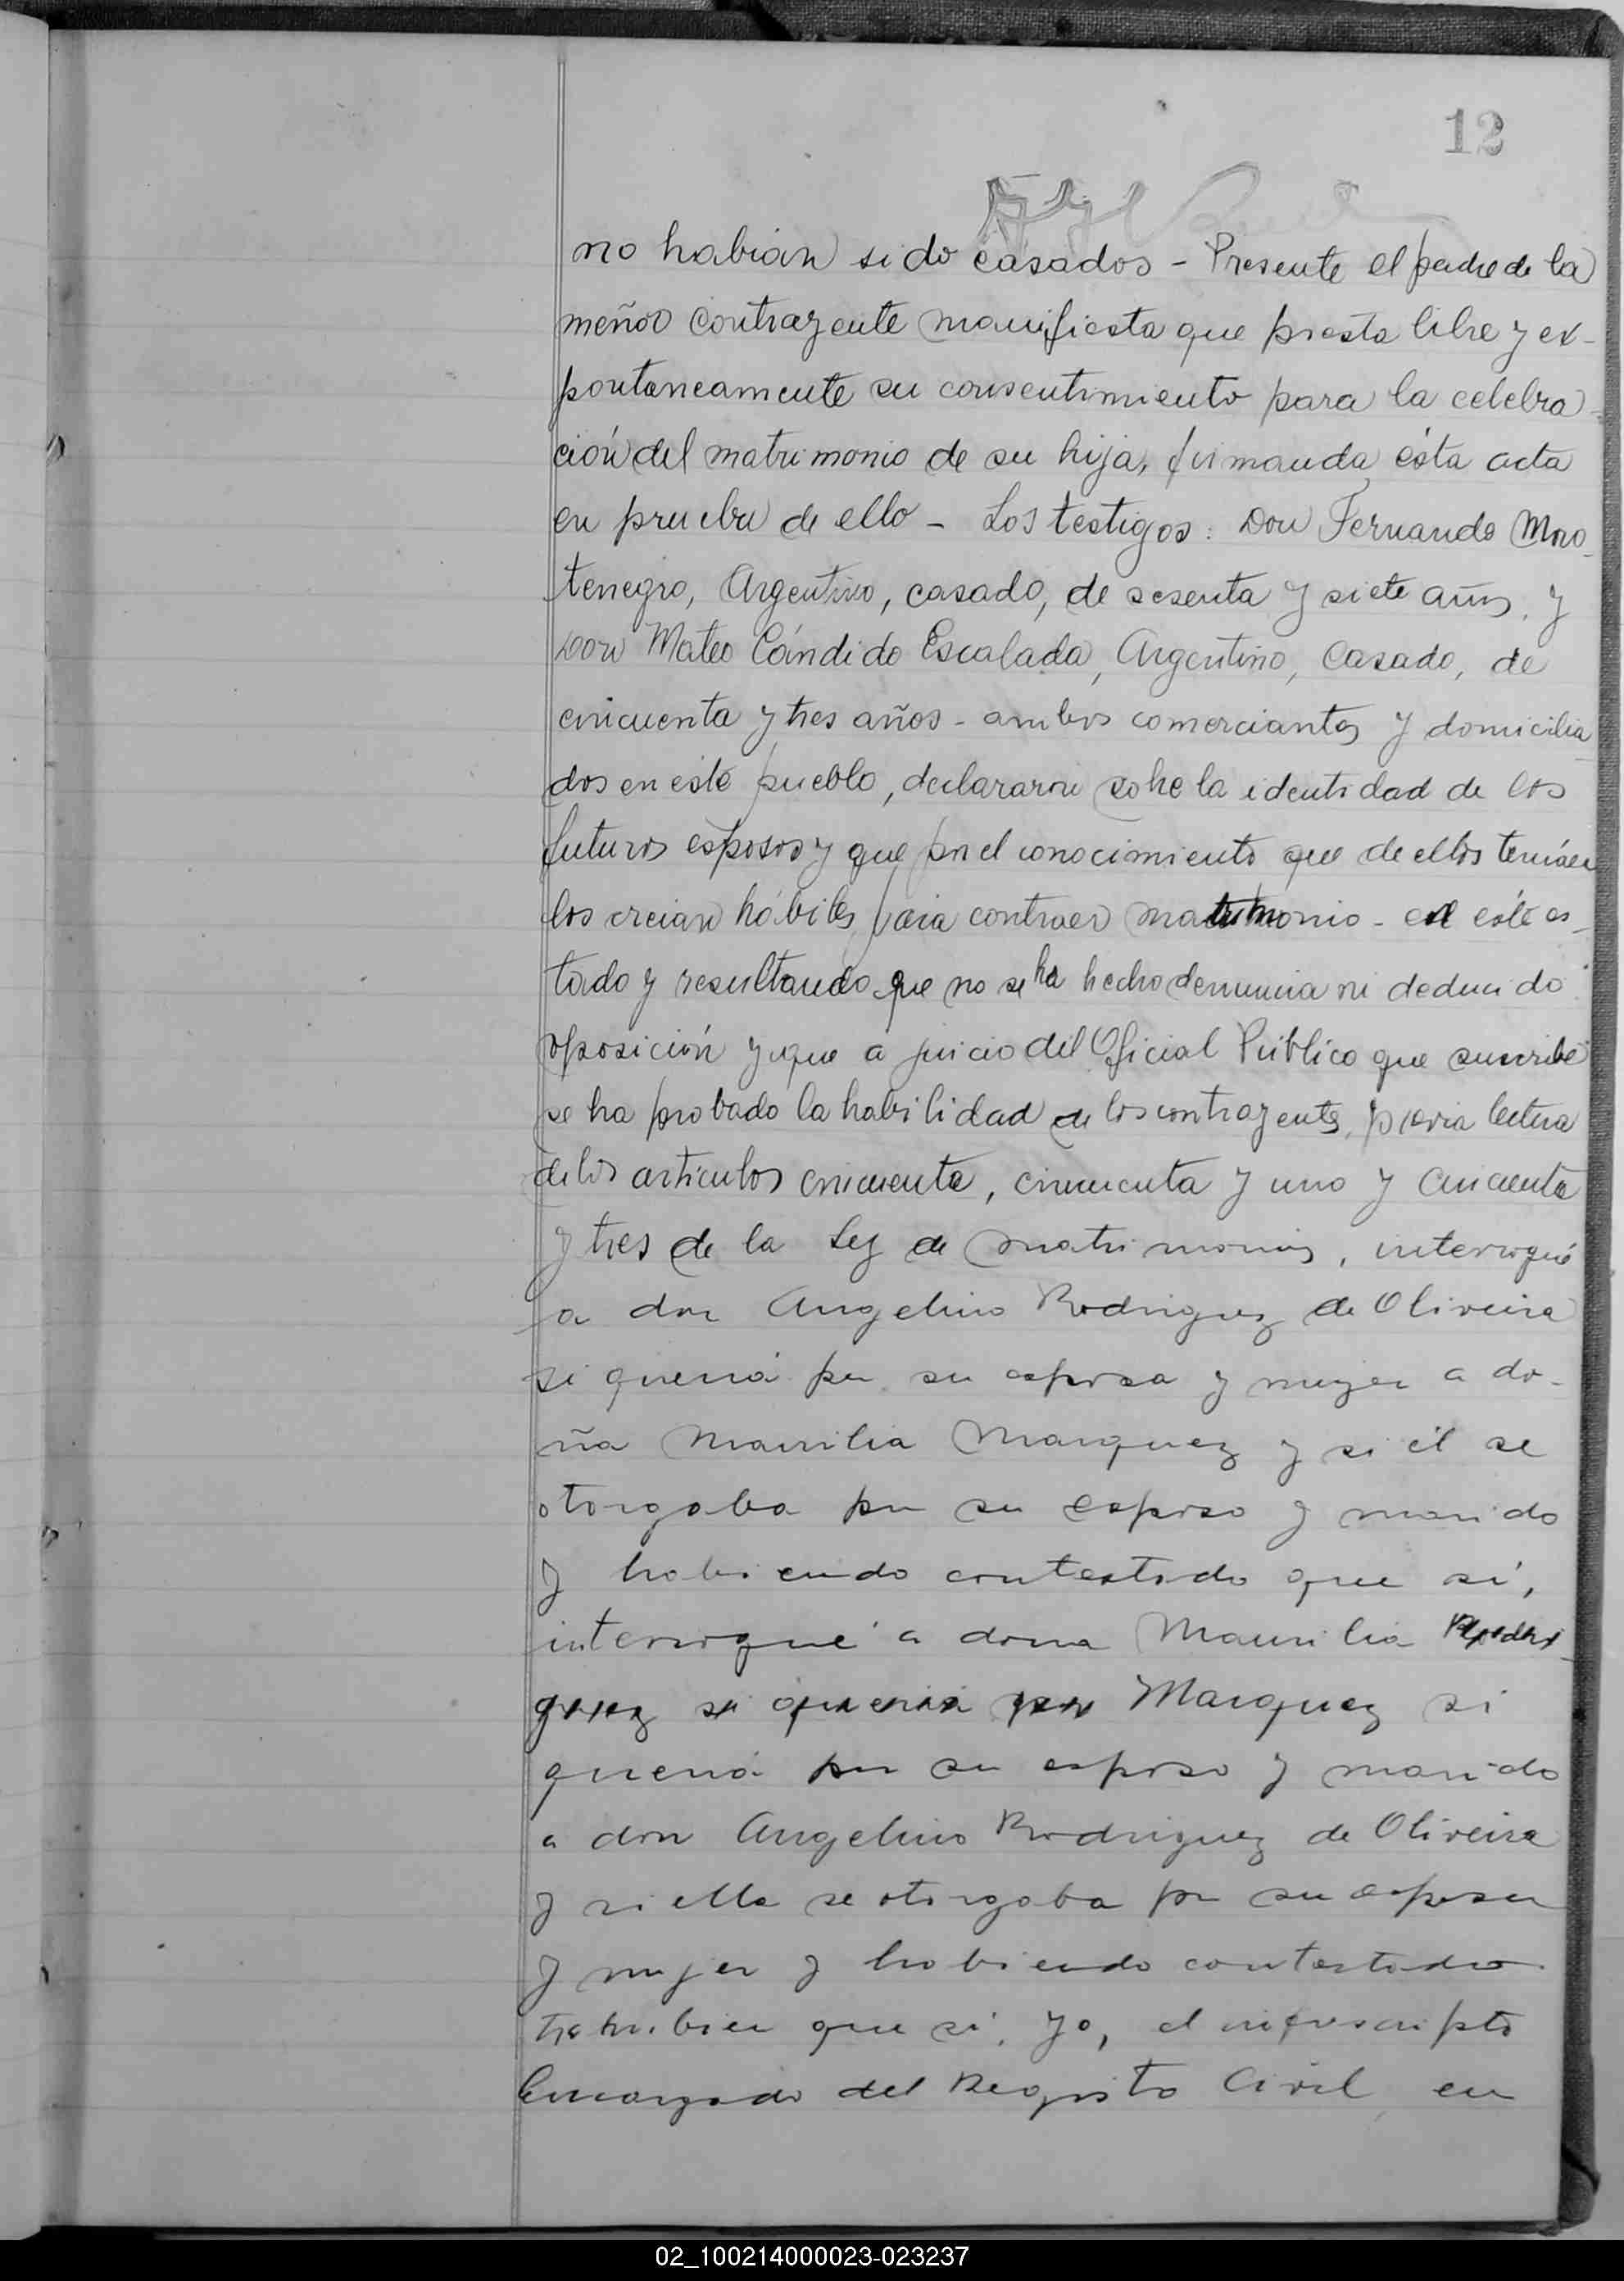 12
no habian sido casados - Presente el padre de la
menor contrayente manifiesta que presta libre y ex-
pontaneamente su consentimiento para la celebra-
ción del matrimonio de su hija, firmando ésta acta
en prueba de ello - Los testigos: Don Fernando Mon-
tenegro, Argentino, casado, de sesenta y siete años, y
Don Mateo Cándido Escalada, Argentino, casado, de
cincuenta y tres años - ambos comerciantes y domicilia-
dos en este pueblo, declararon sobre la identidad de los
futuros esposos y que por el conocimiento que de ellos tenían
los creian hábiles para contraer matrimonio - en este es-
tado y resultando que no se ha hecho denuncia ni deducido
oposición y que a juicio del Oficial Público que suscribe
se ha probado la habilidad de los contrayentes, previa lectura
de los articulos cincuenta, cincuenta y uno y cincuenta
y tres de la Ley de matrimonio, interrogué
a don Angelino Rodriguez de Oliveira
si queria por su esposa y mujer a do-
ña Maurilia Marquez y si él se
otorgaba por su esposo y marido
y habiendo contestado que sí,
interrogué a dona Maurilia Rodri-
guez si queria por Marquez si
queria por su esposo y marido
a don Angelino Rodriguez de Oliveira
y si ella se otorgaba por su esposa
y mujer y habiendo contestado
tambien que si, yo, el infrascripto
Encargado del Registro Civil, en
02_100214000023-023237